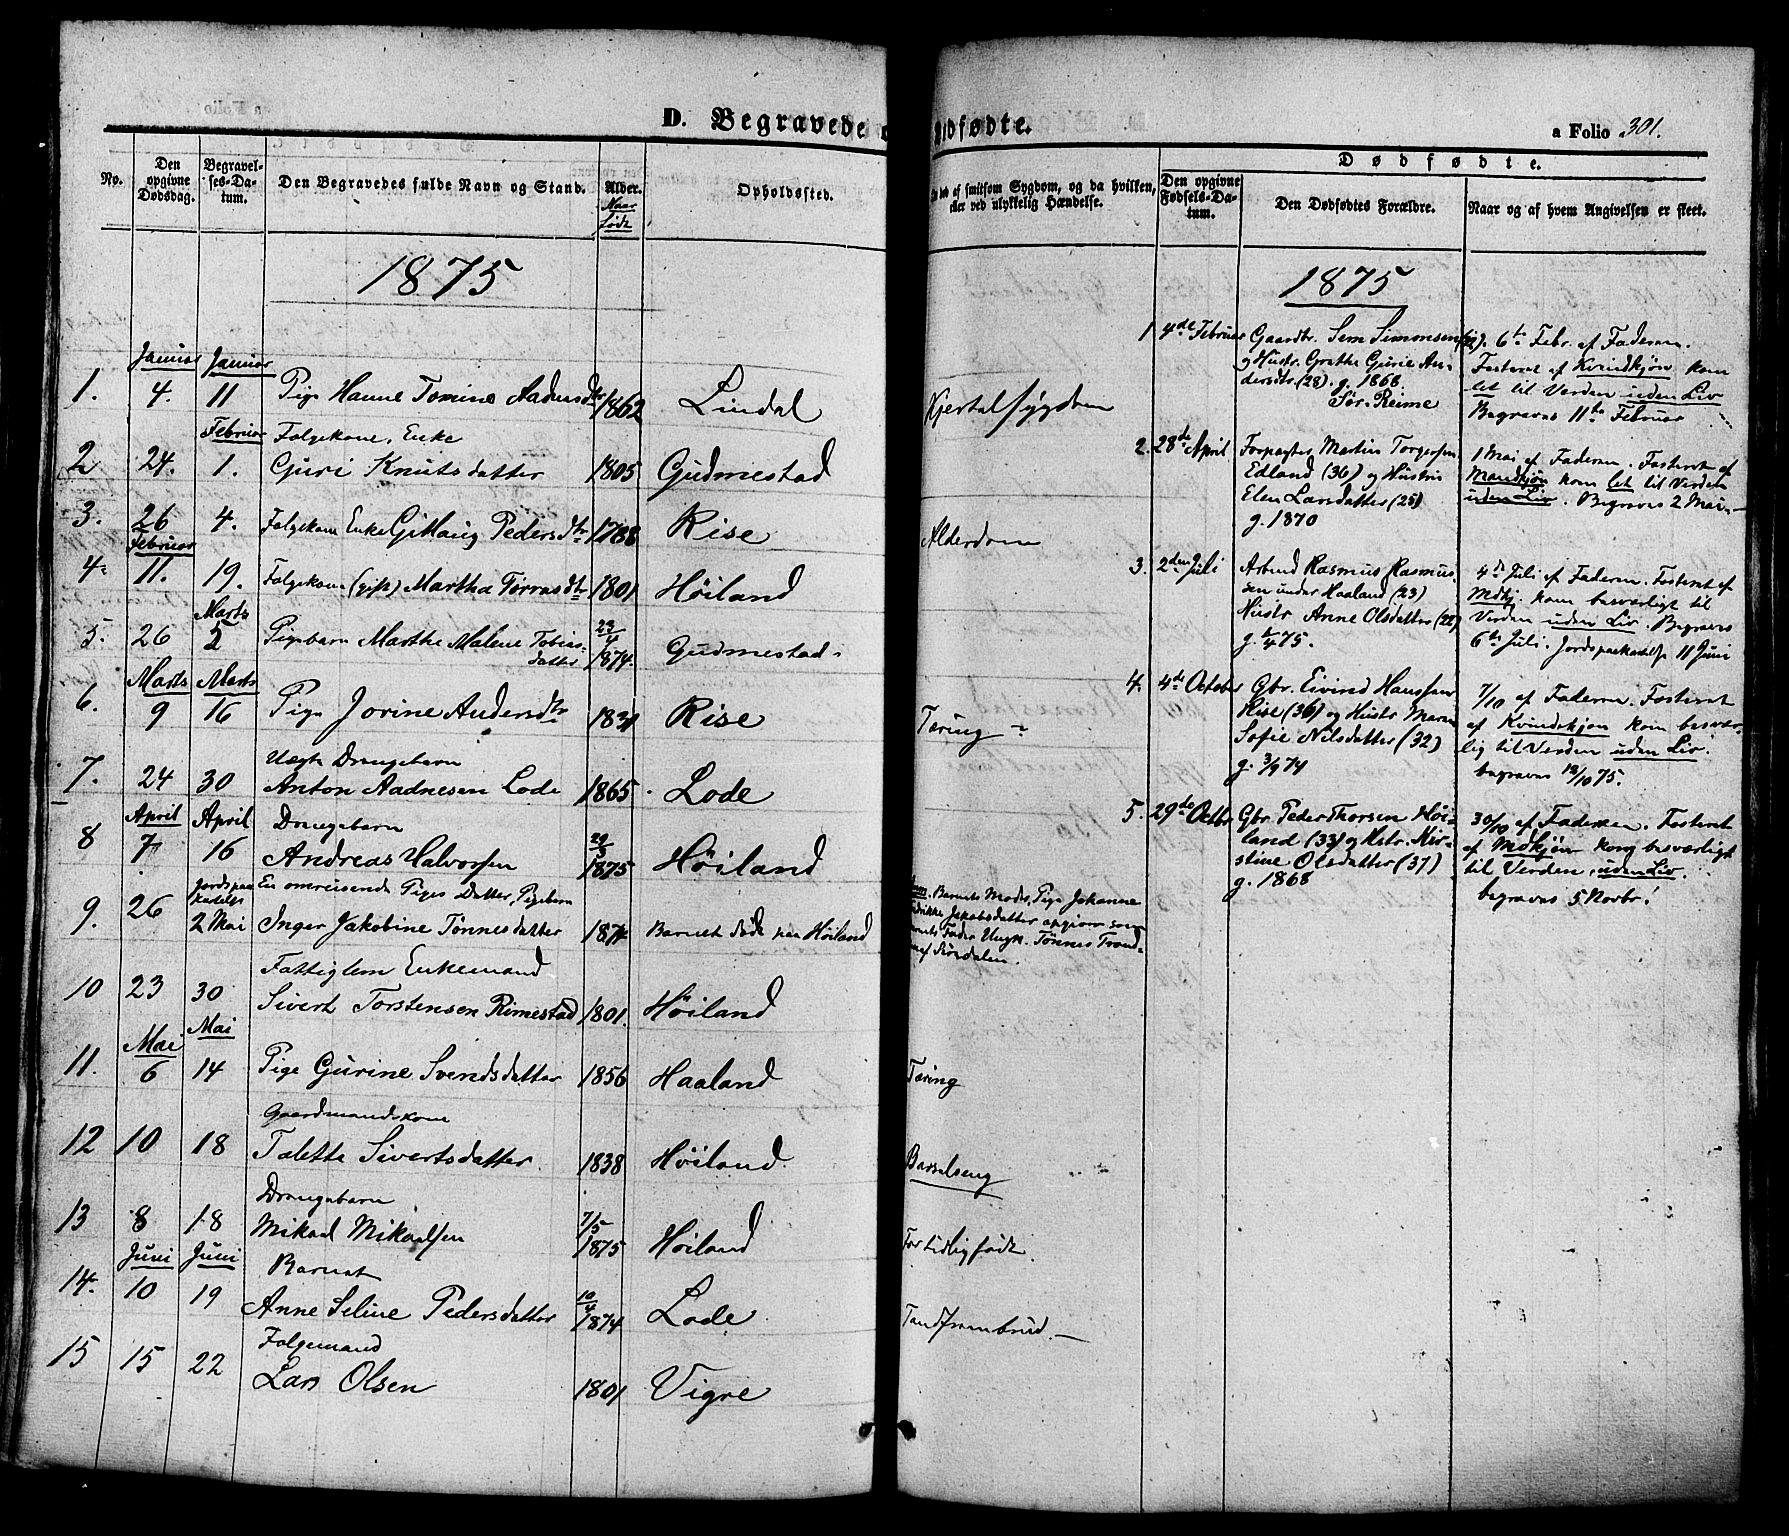 D. Begravede og Dødfødte.
a Folio 301.
No.
Den opgivne Dødsdag.
Begravelses-Datum.
Den Begravedes fulde Navn og Stand.
Alder.
Naar født
Opholdssted.
død af smitsom Sygdom, og da hvilken,
eller ved ulykkelig Hændelse.
Dødfødte.
Den opgivne Fødsels-Datum.
Den Dødfødtes Forældre.
Naar og af hvem Angivelsen er skeet.
1875
Januar Januar
1. 4. 11 Pige Hanne Tomine Aadnesdtr 1862 Lindal Hjertesygdom
Februar Folgekone, Enke
2 24. 1. Guri Knutsdatter 1805 Gudmestad
3. 26 4. Folgekone Enke Pedersdtr 1788 Rise Alderdom
Februar
4. 11. 19. Folgekone (gift) Martha Torrasdtr 1801 Höiland
Marts
5. 26 2 Pigebarn Marthe Malene Tobiasdatter 23/4 1874. Gudmestad
Marts Marts
6. 9 16 Pige Jorine Andersdtr 1831 Rise Tæring
Uægte Drengebarn
7. 24 30 Anton Aadnesen Lode 1865. Lode
April April Drengebarn
8 7 16 Andreas Halvorsen 1875 Höiland
Jordspaakastelse En omreisende Piges Datter, Pigebarn
9. 26 2 Mai Inger Jakobine Tönnesdatter 1874 Barnet døde paa Höiland
Barnets Moder, Pige Johanne
Jakobsdatter opgiver som
Barnets Fader Ungk. Tönnes Trond-
af Siredalen.
Fattiglem Enkemand
10 23 30 Sivert Torstensen Rimestad 1801. Höiland
Mai Mai
11. 6 14 Pige Gurine Svendsdatter 1856 Haaland Tæring
Gaardmandskone
12 10 18 Talette Sivertsdatter 1838 Höiland Barselseng
Drengebarn
13 8 18 Mikael Mikaelsen 7/5 1875 Höiland For tidlig født
Juni Juni Barnet
14. 10 19 Anne Seline Pedersdatter 10/4 1874 Lode Tandfrembrud.
Folgemand
15 15 22 Lars Olsen 1801 Vigre
1875
1. 4de Februar Gaardbr. Sem Simonsen
og Hustr. Grethe Gurie An-
dersdtr. (28). g. 1868.
Sör-Reime
6te Febr. af Faderen.
Fosteret af Kvindkjøn kom
let til Verden uden Liv
Begraves 11te Februar
2. 28de April Forpagter Martin Torgersen
Edland (36) og Hustru
Elen Larsdatter (25)
g. 1870
1 Mai af Faderen. Fosteret af
Mandkjøn kom let til Verden
uden Liv. Begraves 2 Mai.
3. 2den Juli Arbmd Rasmus Rasmus-
sen under Haaland (23)
Hustr Anne Olsdatter (22)
g. /4 75.
4de Juli af Faderen. Fosteret af
Mdkj. kom besværligt til
Verden uden Liv. Begraves
6te Juli. Jordspaakastelse 11 Juni
4. 4de October Gbr. Eivind Hanssen
Rise (36) og Hustr Maren
Sofie Nilsdatter (32)
g. 3/9 74
7/10 af Faderen. Fosteret
af Kvindekjøn kom besvær-
lig til Verden uden Liv.
begraves 13/10 75.
5. 29de Octbr Gbr. Peder Thorsen Höi-
land (33) og Hstr. Kir-
stine Olsdatter (37)
g. 1868
30/10 af Faderen. Fosteret
af Mdkjøn kom besværligt
til Verden, uden Liv.
begraves 5 Novbr.